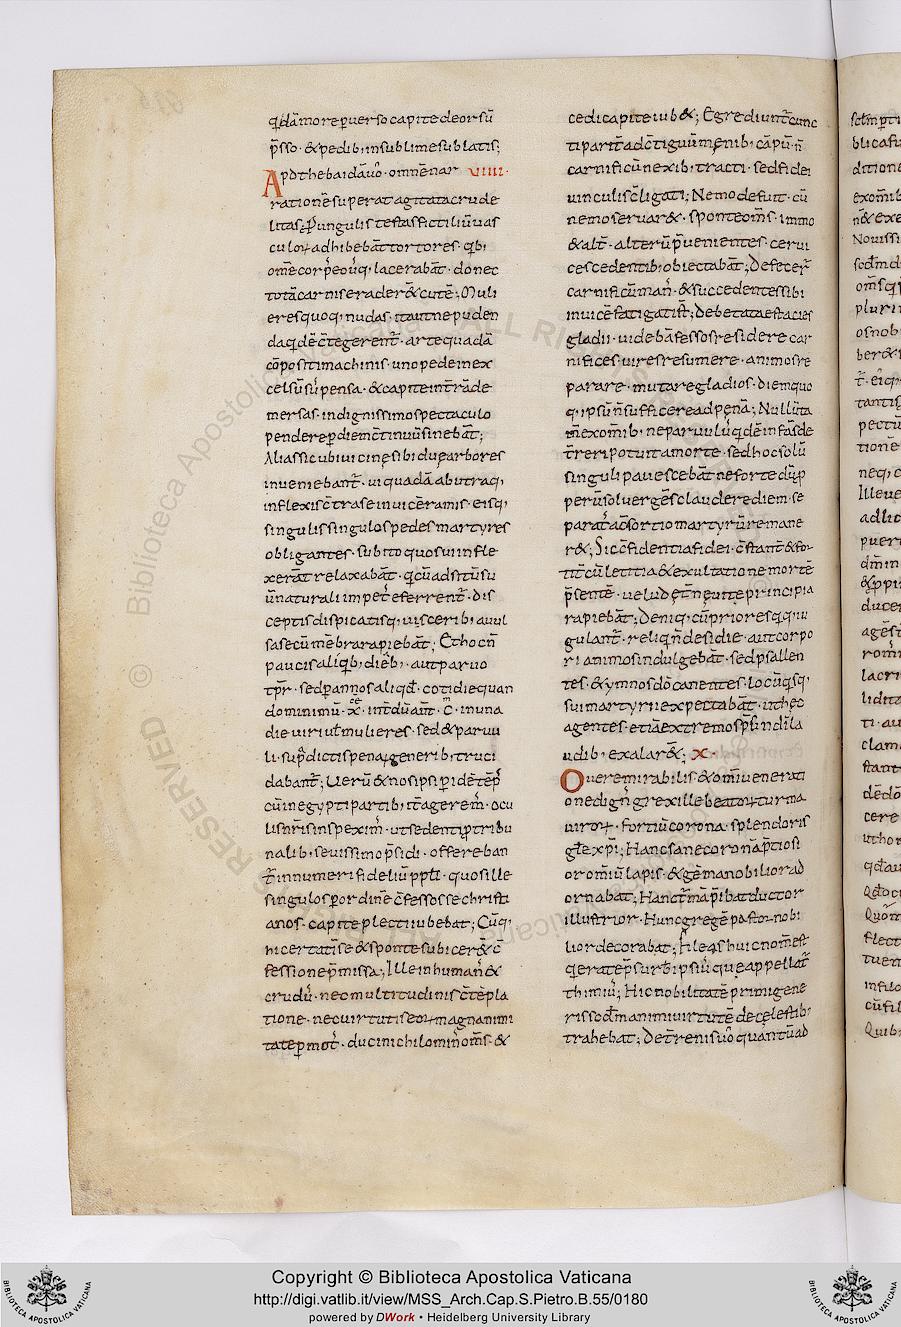 qdā more puerso capite deorsū
p̄sso · & pedib; in sublime sublatis;
Apd thebaidā uº · omnē nar VIIII·
rationē superat agitata crude
litas; P ungulis testas fictiliū uas
culoꝝ adhibebāt tortores · qb;
om̄e corp eouq; lacerabāt · donec
totā carnis eraderꝫ & cutē; Muli
eres quoq; nudas · ita ut ne puden
da qdē c̄tegerent̄ · arte quadā
cōpositi machinis · uno pede in ex
celsū suspensa · & capite in t̄rā de
mersas · indignissimo spectaculo
pendere p diem c̄tinuū sinebāt;
Alias sicubi uicinę sibi duę arbores
inueniebant̄ · ui quadā abutraq;
inflexis c̄tra se inuicē ramis · eisq;
singulis singulos pedes martyres
obligantes · subito quos ui infle
xerāt relaxabāt · q cū ad sitū su
ū naturali impetu referrent̄ · dis
ceptis dispicatisq; uiscerib; auul
sa secū mēbra rapiebāt; Et hoc n̄
paucis aliqb; dieb; · aut paruo
tp̄r · sed p annos aliqd · cotidie quan
do minimū · x · int̄dū aut̄ · c · in una
die uiri ut̄ mulieres · sed & paruu
li · supdictis penaꝝ generib; truci
dabant̄; Verū & nos ipsi p idē tēp
cū in egypti partib; it̄ agerem̄ · ocu
lis nr̄is inspexim̄ · ut sedenti p tribu
nalib; seuissimo p̄sidi · offereban
t̄ innumeri fideliū ppli · quos ille
singulos p ordinē c̄fessos se christi
anos · capite plecti iubebat; Cūq;
hi certatī se & sponte subicerꝫ c̄
fessione p̄missa; Ille inhuman &
crudu · nec multitudinis c̄tēpla
tione · nec uirtutis eoꝝ magnanimi
tate pmot · duci nichilomin om̄s · &
cedi capite iub&; Egrediunt̄ cunc
ti parit̄ ad c̄tiguū menib; cāpū · n̄
carnificū nexib; tracti · sed fidei
uinculis c̄ligati; Nemo defuit · cū
nemo seruar& · sponte om̄s · immo
& alt̄ · alterū p̄uenientes · cerui
ces cedentib; obiectabāt; Defecer
carnificū man · & succedentes sibi
inuicē fatigati st̄; Hebetata est acies
gladii · uidebā fessos residere car
nifices · uires resumere · animos re
parare · mutare gladios · diem quo
q; ipsū n̄ sufficere ad penā; Null ū ta
m̄ ex om̄ib; ne paruulu qdē infās de
t̄reri potuit a morte · sed hoc solū
singuli pauescebāt ne forte dūp
perū sol uergēs clauderet diem · se
parat a c̄sortio martyrū remane
r&; Sic c̄fidentia fidei · c̄stant & for
tit̄ cū letitia & exultatione mortē
p̄sentē · uelud et̄nę uitę principia
rapiebāt; Deniq; cū priores quiq; iu
gulant̄ · reliq n̄ desidie · aut corpo
ri animos indulgebāt · sed psallen
tes · & ymnos dō canentes · locū qsq;
sui martyrii expectabāt · ut hęc
agentes · etiā extremos sp̄s in di la
udib; exalarꝫ; X·
O uere mirabilis & om̄i uenerati
one dign grex ille beatoꝝ turma
uiroꝝ · fortiū corona · splendoris
gl̄e xpi; Hanc sane coronā p̄tiosi
or om̄iū lapis · & gēma nobilior ad
ornabat; Hanc t̄mā p̄ibat ductor
illustrior · Hunc gregē pastor nobi
lior decorabat; Fileas huic nom̄ est
q erat ep̄s urb ipsiu que appellat̄
thimiu; Hic nobilitatē primi gene
ris sc̄dm animi uirtutē de cęlestib;
trahebat; De t̄renis uº quantū ad
Copyright © Biblioteca Apostolica Vaticana
http://digi.vatlib.it/view/MSS_Arch.Cap.S.Pietro.B.55/0180
powered by DWork • Heidelberg University Library